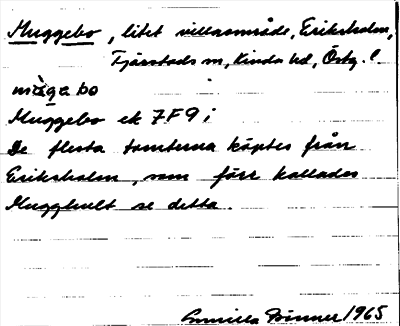 Muggebo, litet villaområde, Eriksholm,
Tjärstads sn, Kinda hd, Östg. l.
mùgabo
Muggebo ek 7F9i
De flesta tomterna köptes från
Eriksholm, som förr kallades
Mugghult se detta.
Gunilla 1965